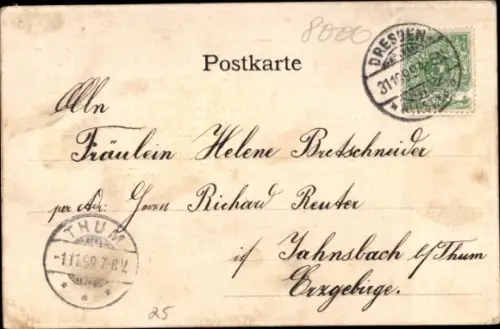 8000
DRESDEN
31.10.99
Postkarte
An
Fräulein Helene Bretschneider
per Adr: Herrn Richard Reuter
in Jahnsbach b/Thum
Erzgebirge.
THUM
1.11.99.7-8.V.
25